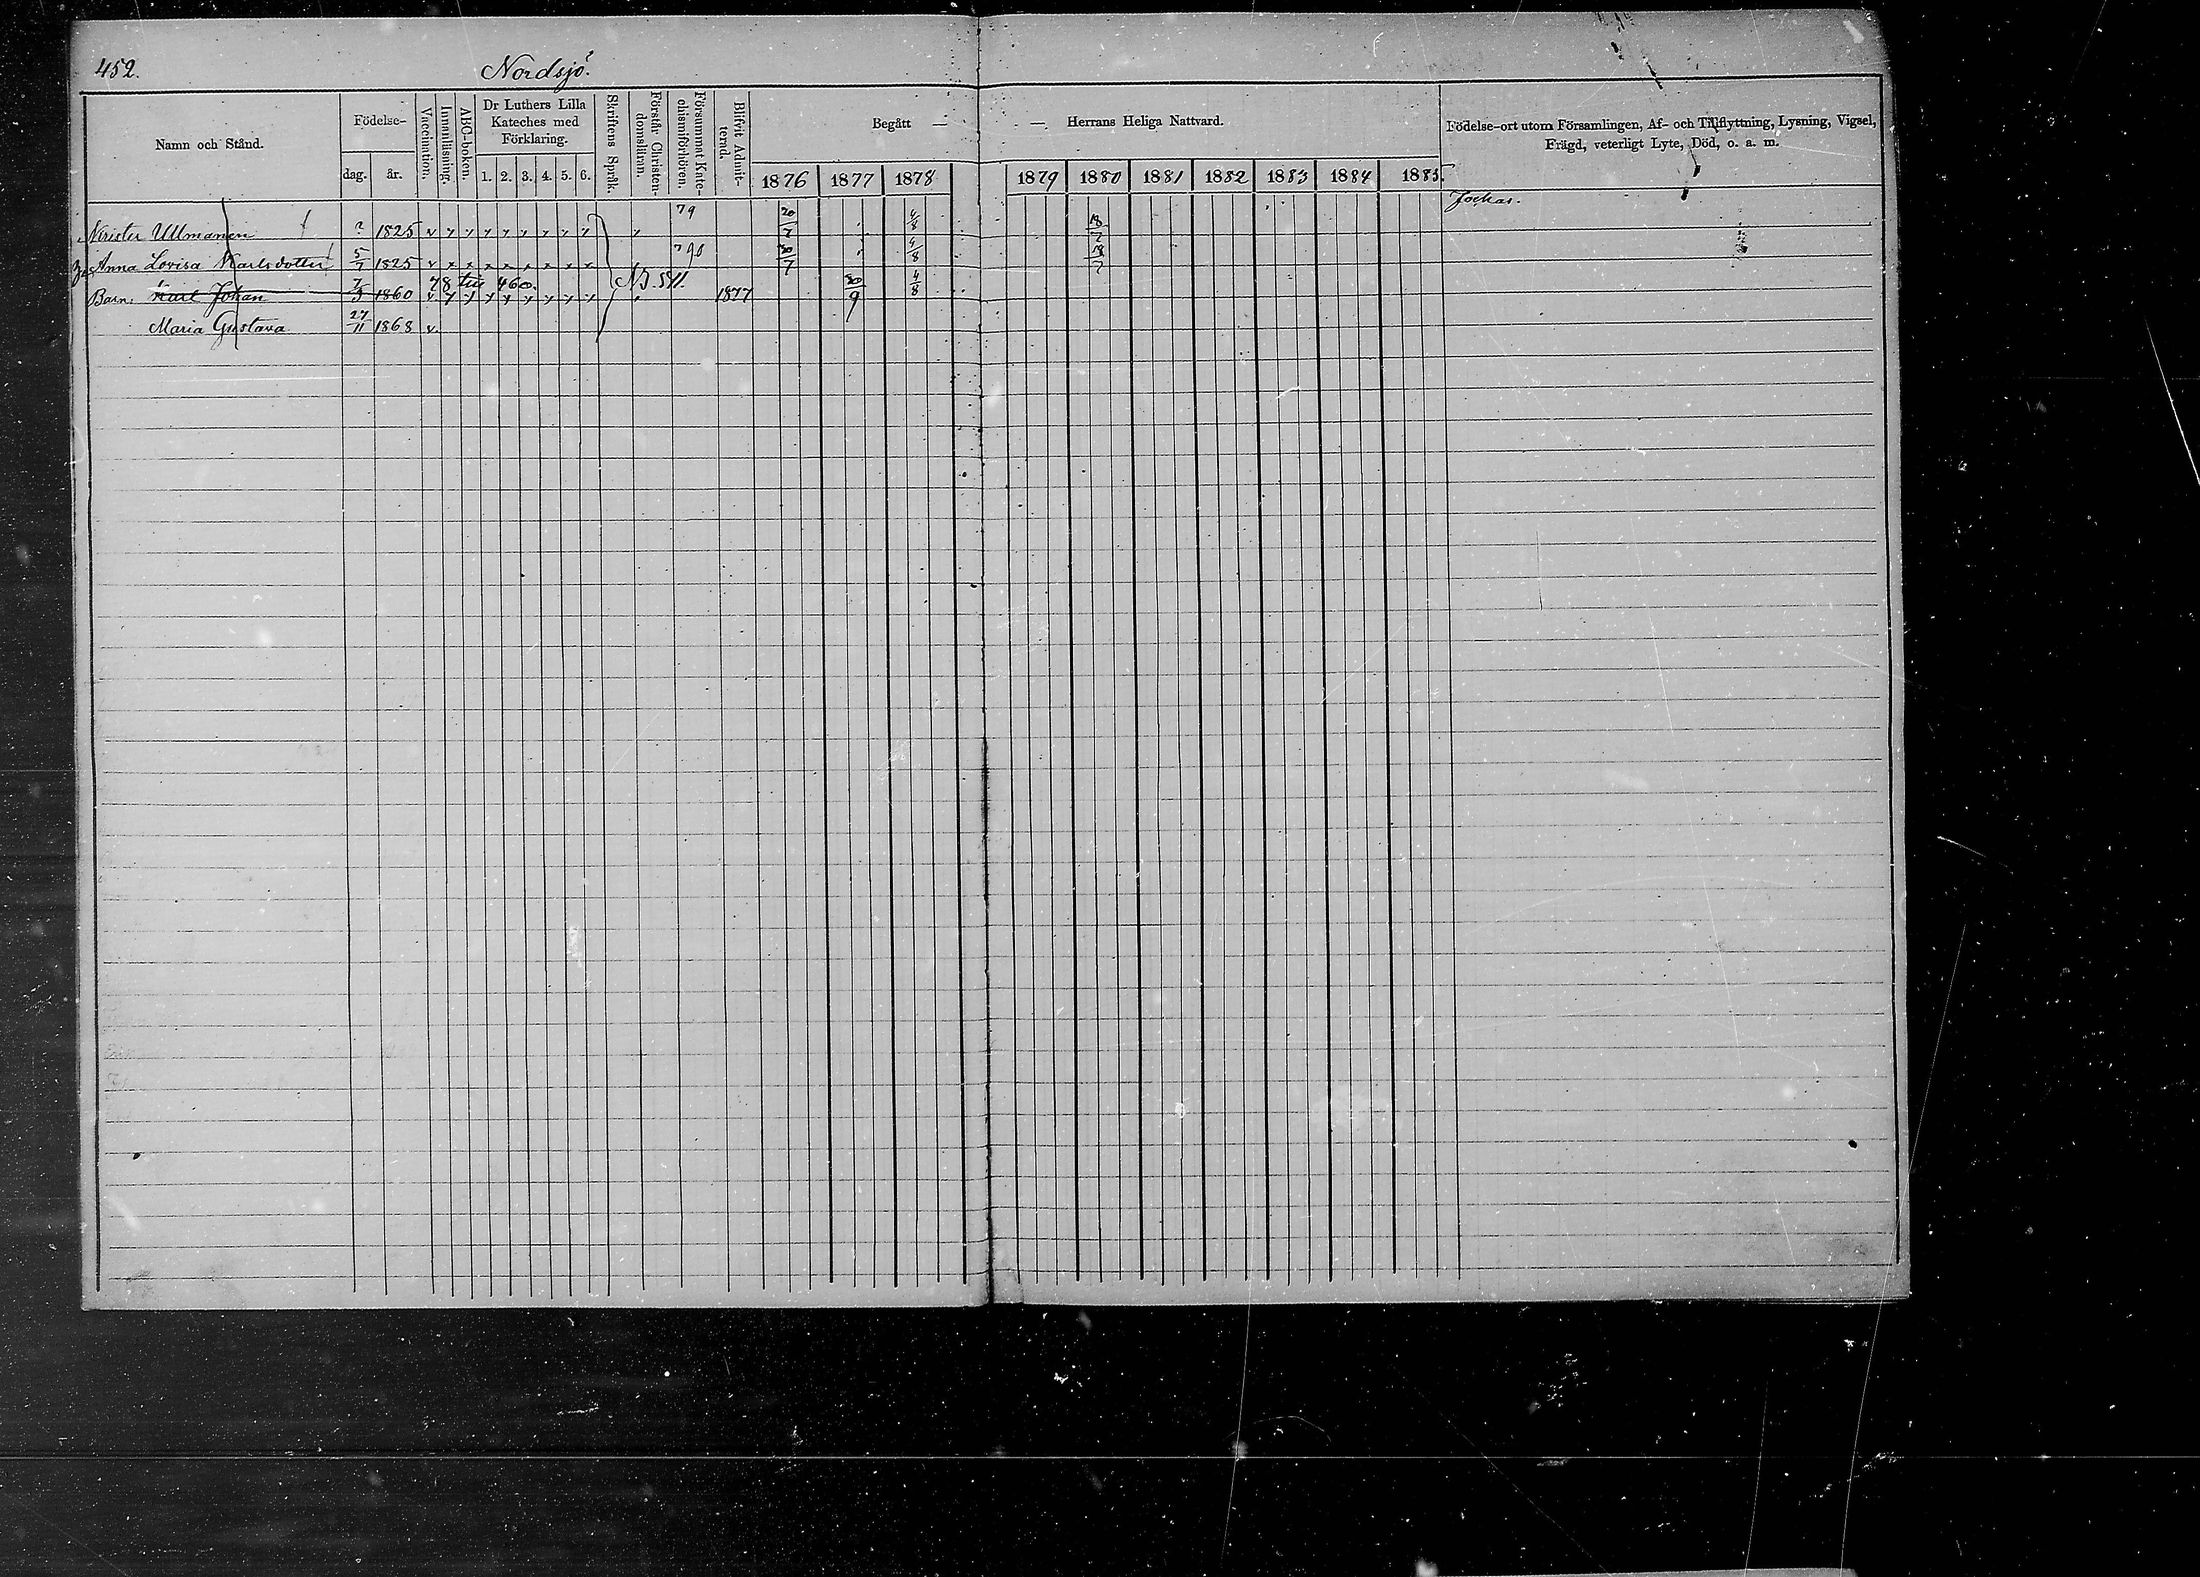 452. Nordsjö.
Namn och Stånd. Födelse- Vaccination. Innanläsning. ABC-boken. Dr Luthers Lilla Kateches med Förklaring. Skriftens Språk. Förstår Christendomsläran. Försummat Katechismiförhören. Blifvit Admitterad. Begått — — Herrans Heliga Nattvard. Födelse-ort utom Församlingen, Af- och Tillflyttning, Lysning, Vigsel, Frägd, veterligt Lyte, Död, o. a. m.
dag. år. 1. 2. 3. 4. 5. 6. 1876 1877 1878 1879 1880 1881 1882 1883 1884 1885
Jockas.
Krister Ullmanen ? 1825 v 79 20/7 4/8 18/7
Anna Lovisa Karlsdotter 5/7 1825 v 90 30/7 4/8 18/7
78 till 460. N.B. 511
Barn: Karl Johan 7/3 1860 v 1877 30/9 4/8
Maria Gustava 27/11 1868 v.